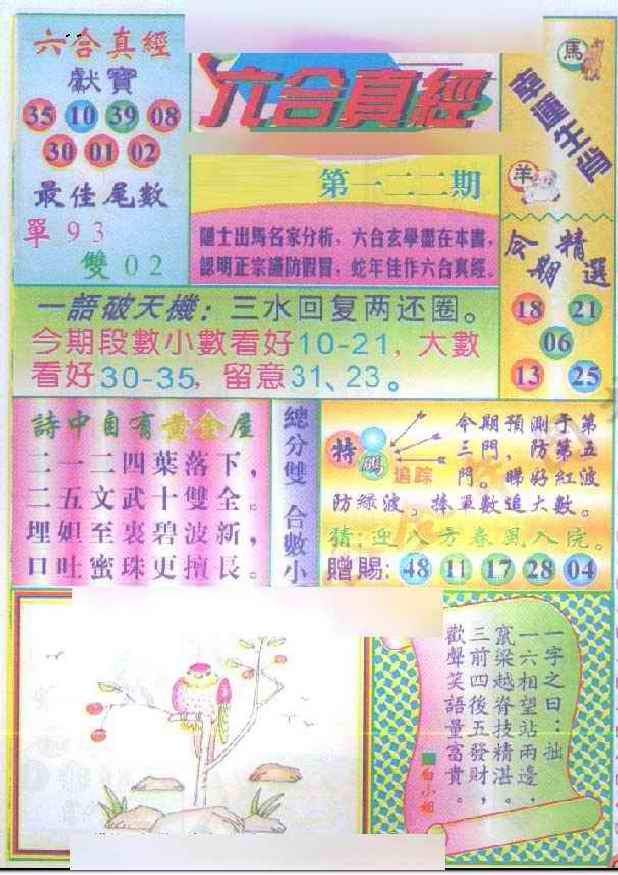 六合真經
獻寶
35 10 39 08
30 01 02
最佳尾數
單 9 3
雙 0 2
六合真經
第一二二期
隱士出馬名家分析，六合玄學盡在本書，
認明正宗謹防假冒，蛇年佳作六合真經。
馬
幸運生肖
羊
今期精選
18 21
06
13 25
一語破天機：三水回复两还圈。
今期段數小數看好10-21，大數
看好30-35，留意31、23。
詩中自有黄金屋
二一二四葉落下，
二五文武十雙全。
埋姐至裏碧波新，
口吐蜜珠更擅長。
總分雙 合數小
特碼
追踪
今期預測于第
三門，防第五
門。睇好紅波
防綠波，捧單數追大數。
猜：迎八方春風入院。
贈賜：48 11 17 28 04
一字之曰：拙
一六相望站兩邊，
竄梁越脊技精湛。
三前四後五發財，
歡聲笑語量富貴。
白小姐